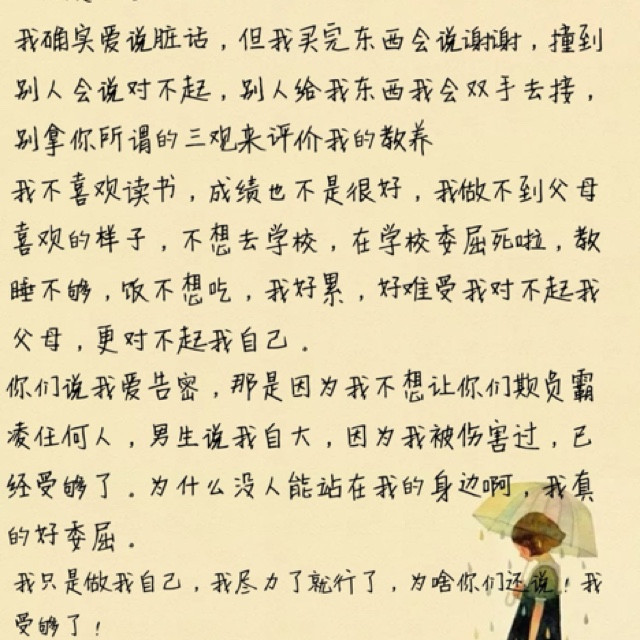 我确实爱说脏话，但我买完东西会说谢谢，撞到
别人会说对不起，别人给我东西我会双手去接，
别拿你所谓的三观来评价我的教养
我不喜欢读书，成绩也不是很好，我做不到父母
喜欢的样子，不想去学校，在学校委屈死啦，教
睡不够，饭不想吃，我好累，好难受我对不起我
父母，更对不起我自己。
你们说我爱告密，那是因为我不想让你们欺负霸
凌任何人，男生说我自大，因为我被伤害过，已
经受够了。为什么没人能站在我的身边啊，我真
的好委屈。
我只是做我自己，我尽力了就行了，为啥你们还说！我
受够了！